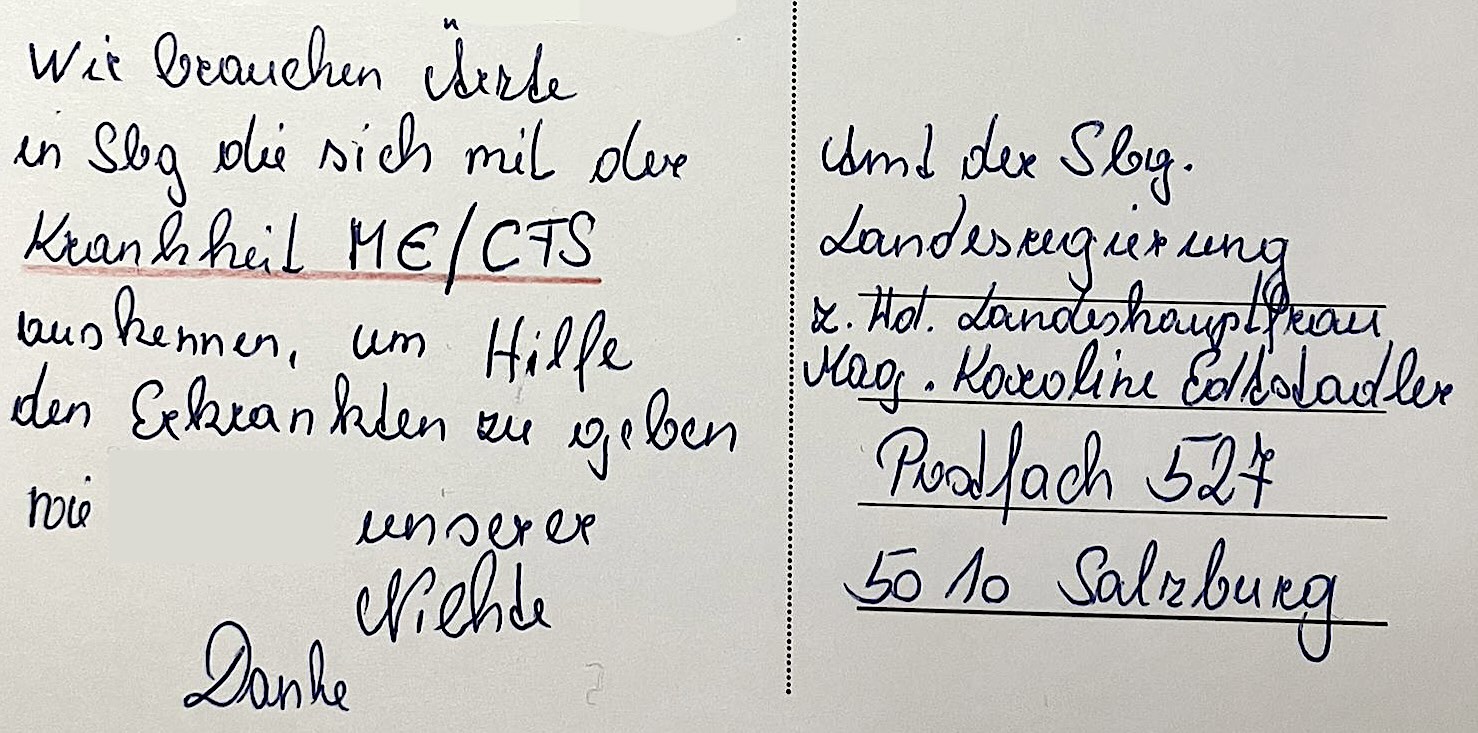 Wir brauchen Ärzte
in Sbg die sich mit der
Krankheit ME/CFS
auskennen, um Hilfe
den Erkrankten zu geben
wie
unserer
Nichte
Danke
Amt der Sbg.
Landesregierung
z. Hd. Landeshauptfrau
Mag. Karoline Edtstadler
Postfach 527
5010 Salzburg